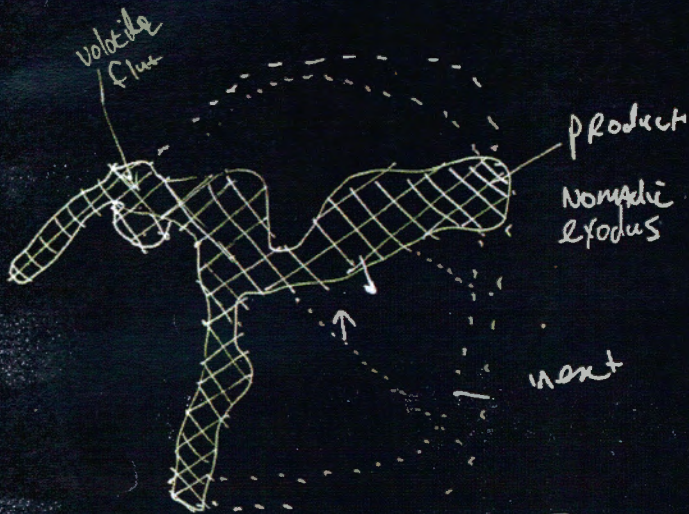 volatile
flux
product
Nomadic
exodus